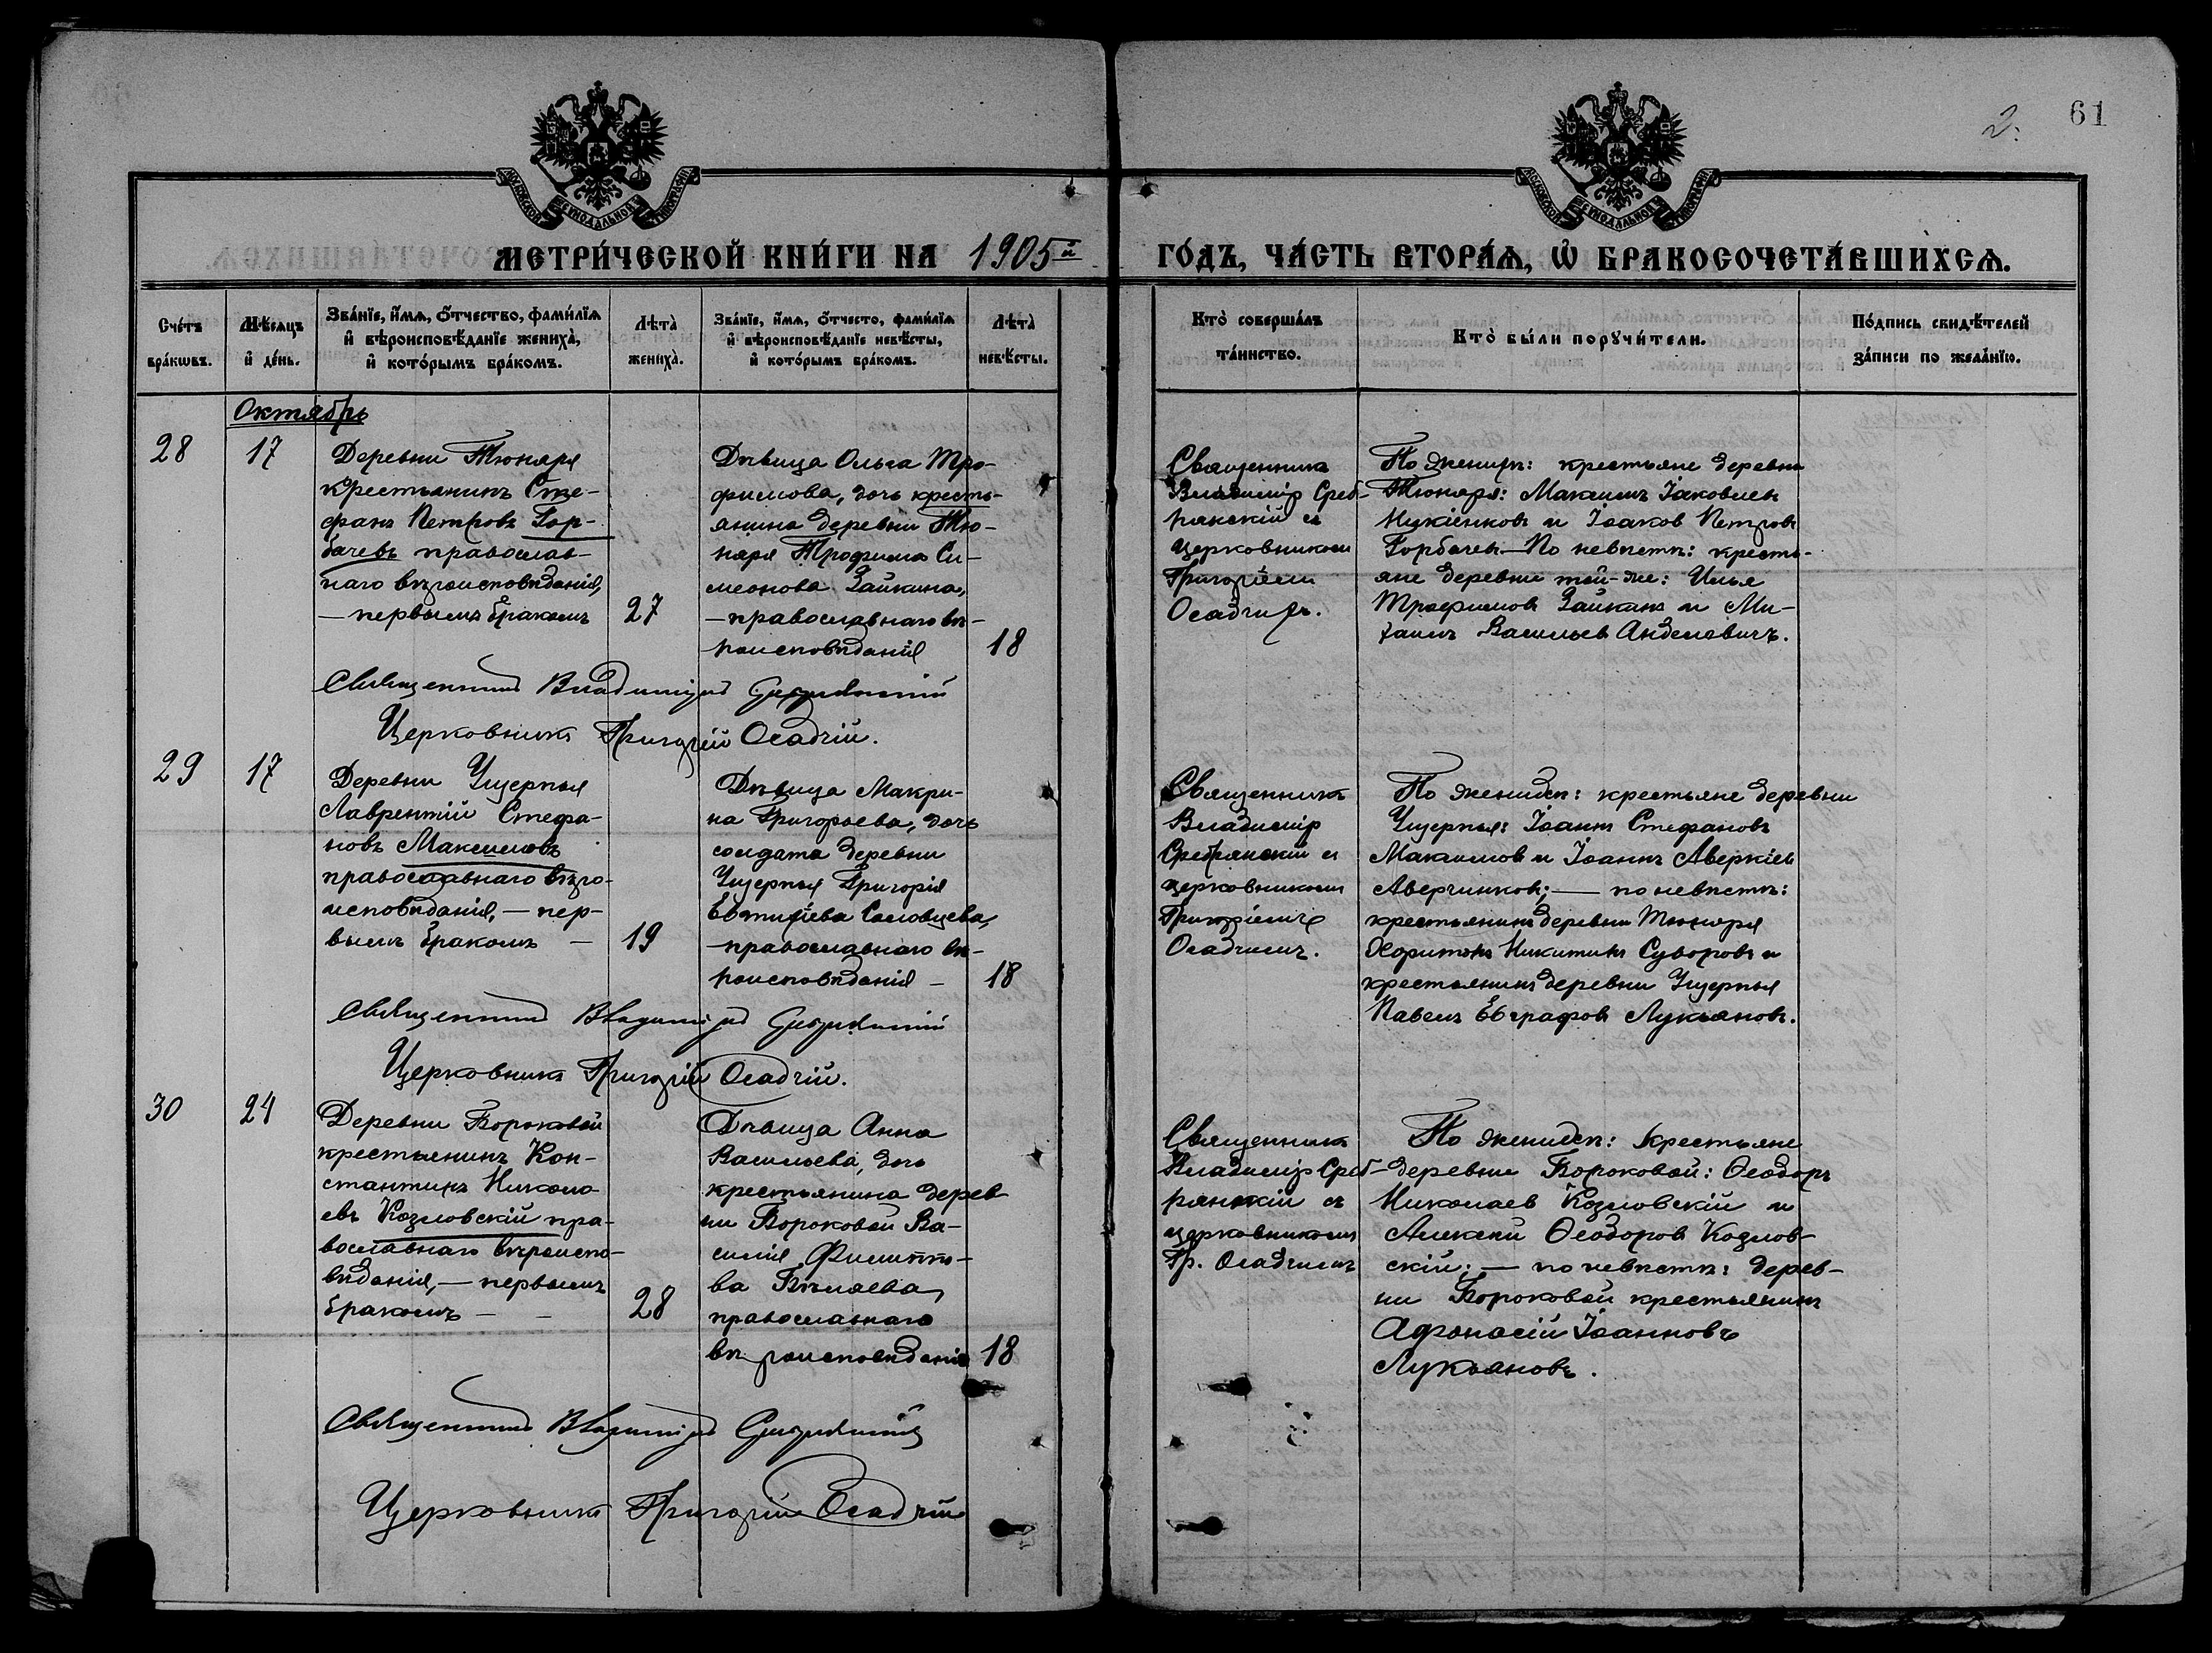 2. 61
МЕТРИ́ЧЕСКОЙ КНИ́ГИ НА 1905й ГО́ДЪ, ЧА́СТЬ ВТОРА́Я, Ѡ БРАКОСОЧЕТА́ВШИХСЯ.
Сче́тъ бра́кωвъ.
Мѣ́сяцъ и҆ де́нь.
Зва́нїе, и҆́мя, ѻ҆́тчество, фами́лїя
и҆ вѣроисповѣ́данїе жениха̀,
и҆ кото́рымъ бра́комъ.
Лѣта̀ жениха̀.
Зва́нїе, и҆́мя, ѻ҆́тчесто, фами́лїя
и҆ вѣроисповѣ́данїе невѣ́сты,
и҆ кото́рымъ бра́комъ.
Лѣта̀ невѣ́сты.
Кто̀ соверша́лъ
та́инство.
Кто̀ бы́ли порꙋчи́тели.
По́дпись свидѣ́телей
за́писи по жела́нїю.
Октябрь
28
17
Деревни Тюняря
крестьянинъ Сте-
фанъ Петровъ Гор-
бачевъ православ-
наго вѣроисповѣданія,
— первымъ бракомъ
27
Дѣвица Ольга Тро-
фимова, дочь кресть-
янина деревни Тю-
няря Трофима Си-
меонова Зайкина,
— православнаго вѣ-
роисповѣданія
18
Священникъ
Владиміръ Среб-
рянскій съ
церковникомъ
Григоріемъ
Осадчимъ.
По женихѣ: крестьяне деревни
Тюняря: Максимъ Іаковлевъ
и Іоаковъ Петровъ
Горбачевъ — По невѣстѣ: кресть-
яне деревни той-же: Илья
Трофимовъ Зайкинъ и Ми-
хаилъ Васильевъ
Священникъ Владиміръ Сребрянскій
Церковникъ Григорій Осадчій.
29
17
Деревни Ущерпья
Лаврентій Стефа-
новъ Максимовъ
православнаго вѣро-
исповѣданія, — пер-
вымъ бракомъ —
19
Дѣвица Макри-
на Григорьева, дочь
солдата деревни
Ущерпья Григорія
Евтихіева Соловцева,
— православнаго вѣ-
роисповѣданія —
18
Священникъ
Владиміръ
Сребрянскій съ
церковникомъ
Григоріемъ
Осадчимъ.
По женихѣ: крестьяне деревни
Ущерпья: Іоаннъ Стефановъ
Максимовъ и Іоаннъ Аверкіевъ
Аверчинковъ; — по невѣстѣ:
крестьянинъ деревни Тюняря
Харитонъ Никитинъ Суворовъ и
крестьянинъ деревни Ущерпья
Павелъ Евграфовъ Лукьяновъ.
Священникъ Владиміръ Сребрянскій
Церковникъ Григорій Осадчій.
30
24
Деревни Бороковой
крестьянинъ Кон-
стантинъ Никола-
евъ Козловскій пра-
вославнаго вѣроиспо-
вѣданія, — первымъ
бракомъ — —
28
Дѣвица Анна
Васильева, дочь
крестьянина дерев
ни Бороковой Ва-
силія Филиппо-
ва Бѣляева,
православнаго
вѣроисповѣданія
18
Священникъ
Владиміръ Среб-
рянскій съ
церковникомъ
Гр. Осадчимъ
По женихѣ: крестьяне
деревни Бороковой: Ѳеодоръ
Николаевъ Козловскій и
Алексѣй Ѳеодоровъ Козлов-
скій; — по невѣстѣ: дерев-
ни Бороковой крестьянинъ
Афонасій Іоанновъ
Лукьяновъ.
Священникъ Владиміръ Сребрянскій
Церковникъ Григорій Осадчій